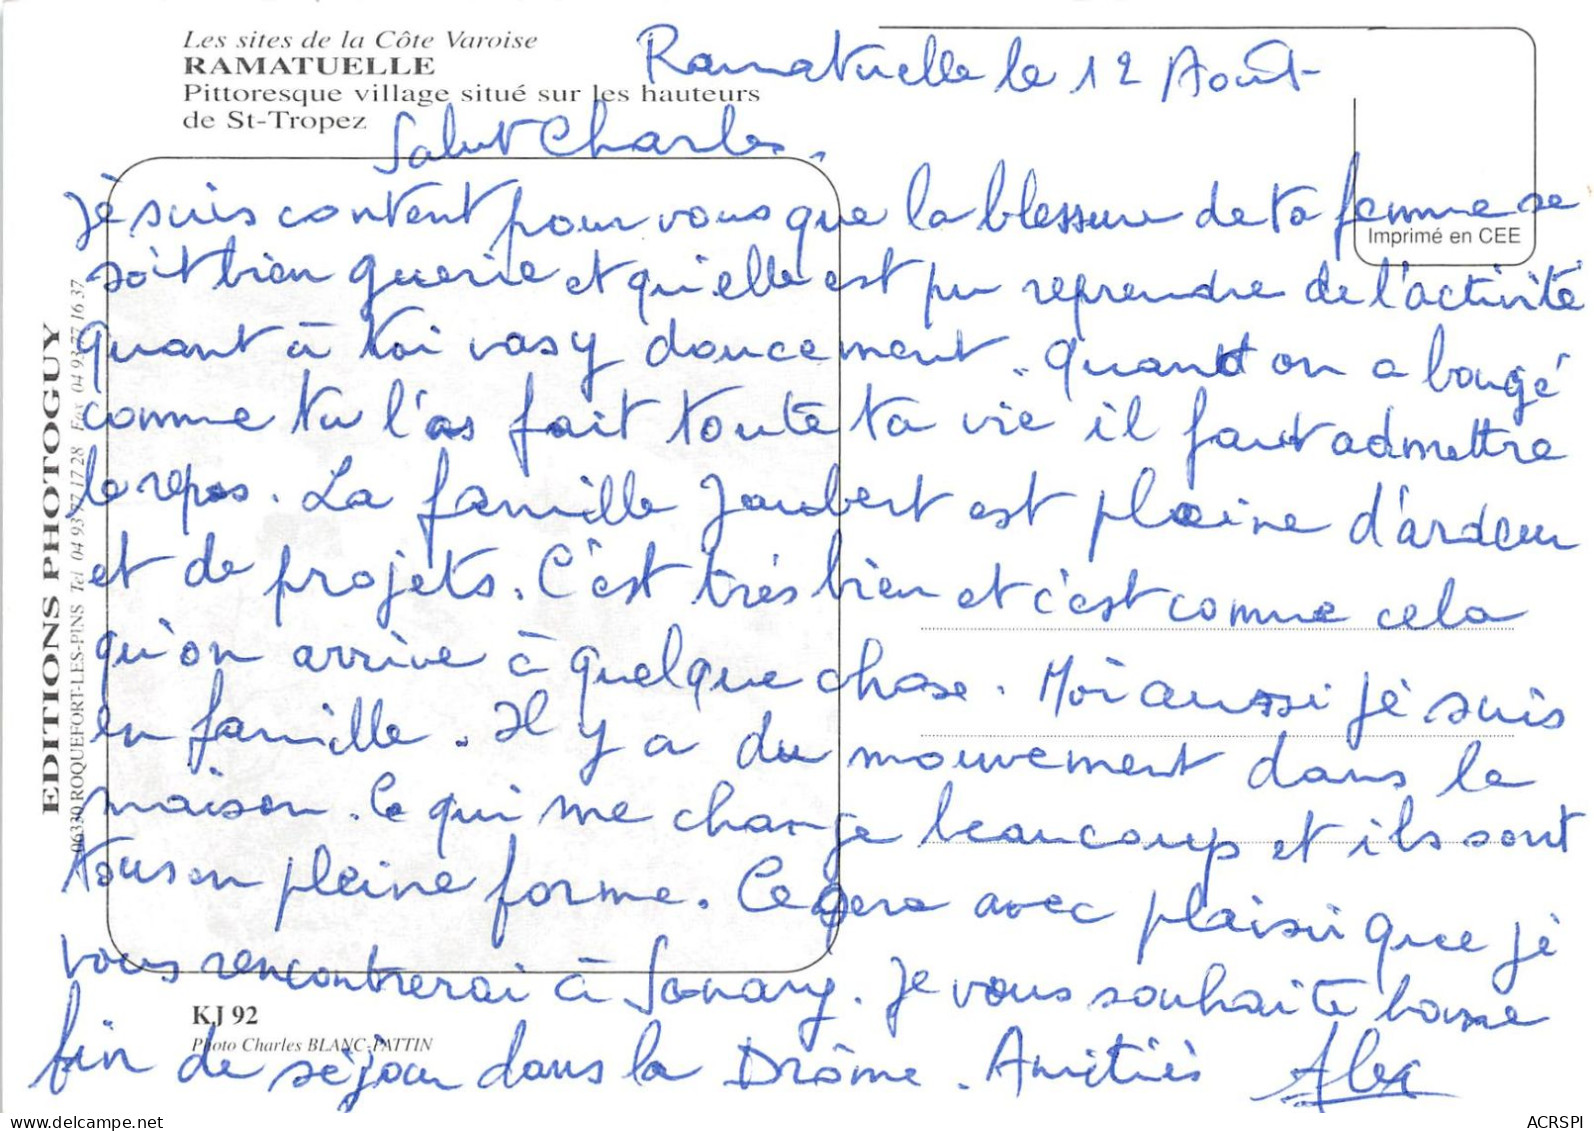 Les sites de la Côte Varoise
RAMATUELLE
Pittoresque village situé sur les hauteurs
de St-Tropez
Imprimé en CEE
Ramatuelle le 12 Août
Salut Charles.
Je suis content pour vous que la blessure de ta femme se
soit bien guerie et qu'elle est pu reprendre de l'activité
quant à toi vas y doucement. quand on a bougé
comme tu l'as fait toute ta vie il faut admettre
le repos. La famille Jaubert est pleine d'ardeur
et de projets. C'est très bien et c'est comme cela
qu'on arrive à quelque chose. Moi aussi je suis
en famille. Il y a du mouvement dans la
maison. Ce qui me change beaucoup et ils sont
tous en pleine forme. Ce sera avec plaisir que je
vous rencontrerai à Sanary. Je vous souhaite bonne
fin de séjour dans la Drôme. Amitiés Alex
EDITIONS PHOTOGUY
06330 ROQUEFORT-LES-PINS Tel 04 93 77 17 28 Fax 04 93 77 16 37
KJ 92
Photo Charles BLANC-PATTIN
ACRSPI